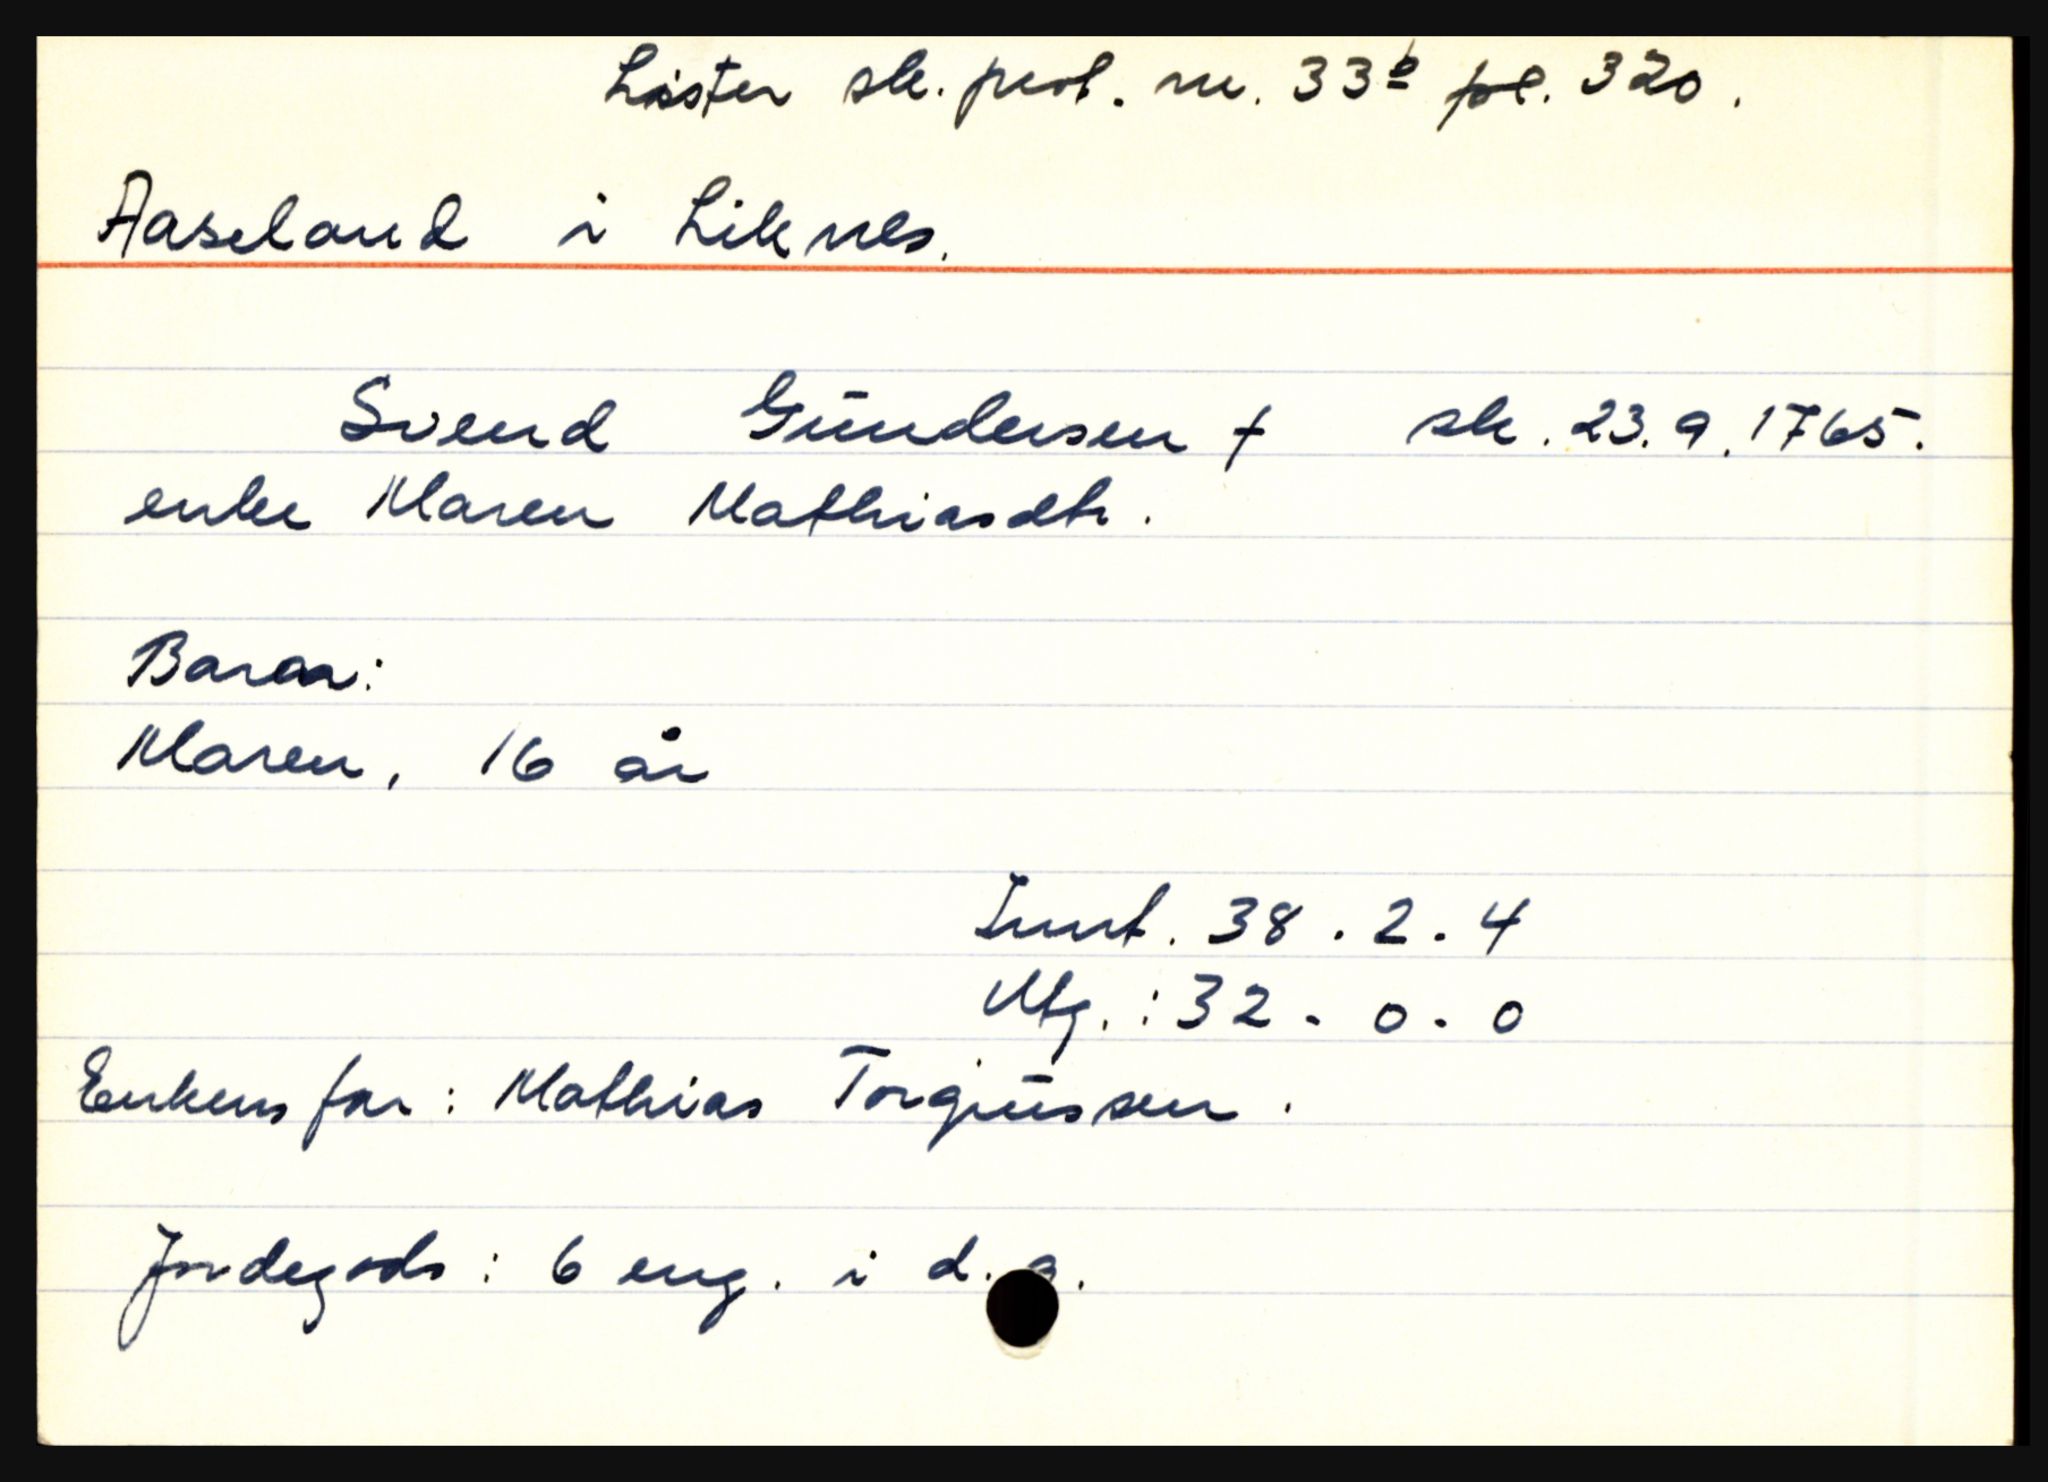 Lister sk. prot. nr. 33b fol. 320.
Aaseland i Liknes.
Svend Gundersen † sk. 23.9.1765.
enke Maren Mathiasdtr.
Baren:
Maren, 16 år
Innt. 38.2.4
Utg.: 32.0.0
Enkens far: Mathias Torgiussen.
Jordegods: 6 eng. i d. g.